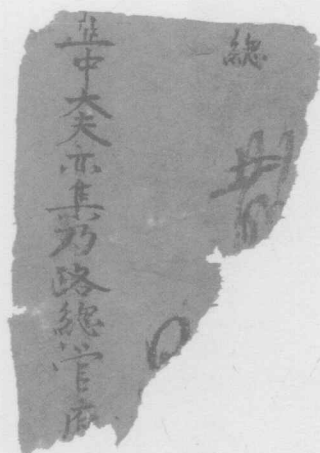 總
亞中大夫亦集乃路總管府